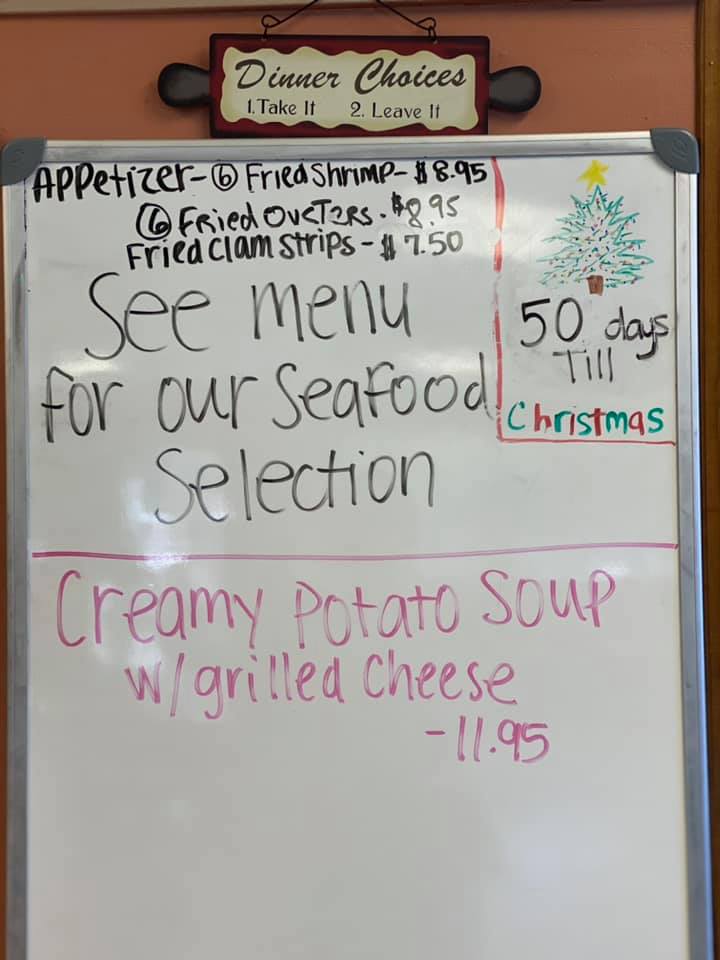 Dinner Choices
1. Take It 2. Leave It
Appetizer - ⑥ Fried Shrimp - $8.95
⑥ Fried OysTers - $8.95
Fried Clam Strips - $7.50
See menu
for our Seafood
Selection
50 days
Till
Christmas
Creamy Potato Soup
w/grilled Cheese
- 11.95